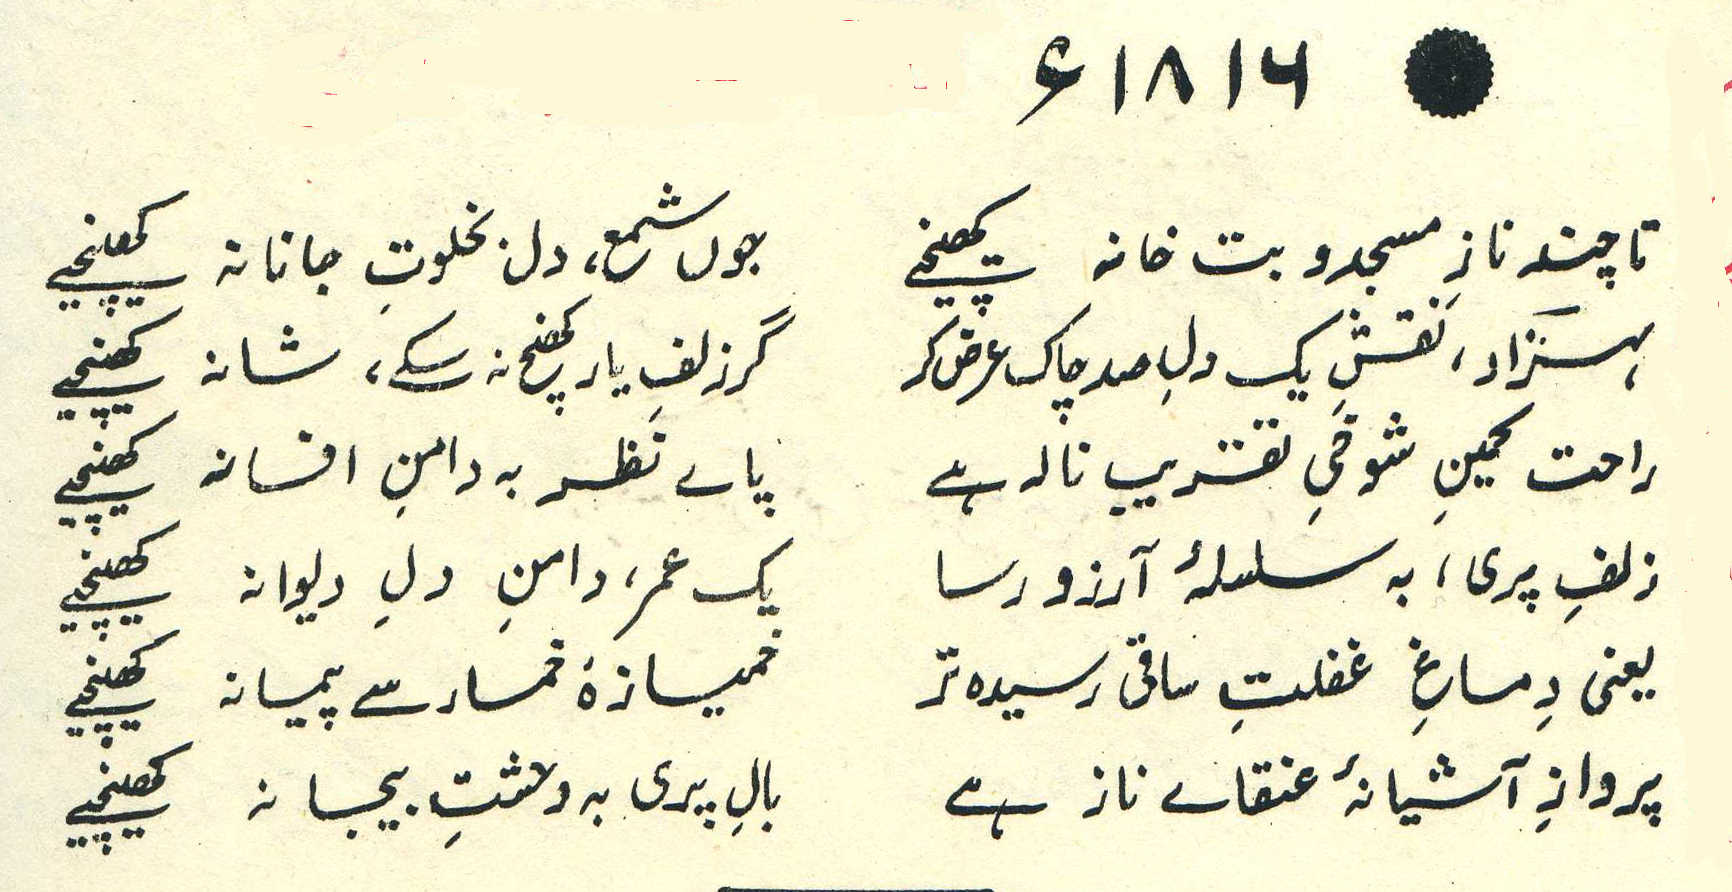 ۱۸۱۶ء
تا چند نازِ مسجد و بت خانہ کھینچیے جوں شمع، دل بخلوتِ جانانہ کھینچیے
بہزاد، نقشِ یک دلِ صد چاک عرض کر گر زلفِ یار کھنچ نہ سکے، شانہ کھینچیے
راحت کمینِ شوخیِ تقریبِ نالہ ہے پاے نظر بہ دامنِ افسانہ کھینچیے
زلفِ پری، بہ سلسلۂ آرزو رسا یک عمر، دامنِ دلِ دیوانہ کھینچیے
یعنی دِماغِ غفلتِ ساقی رسیدہ تر خمیازۂ خمار سے پیمانہ کھینچیے
پروازِ آشیانۂ عنقاے ناز ہے بالِ پری بہ وحشتِ بیجا نہ کھینچیے